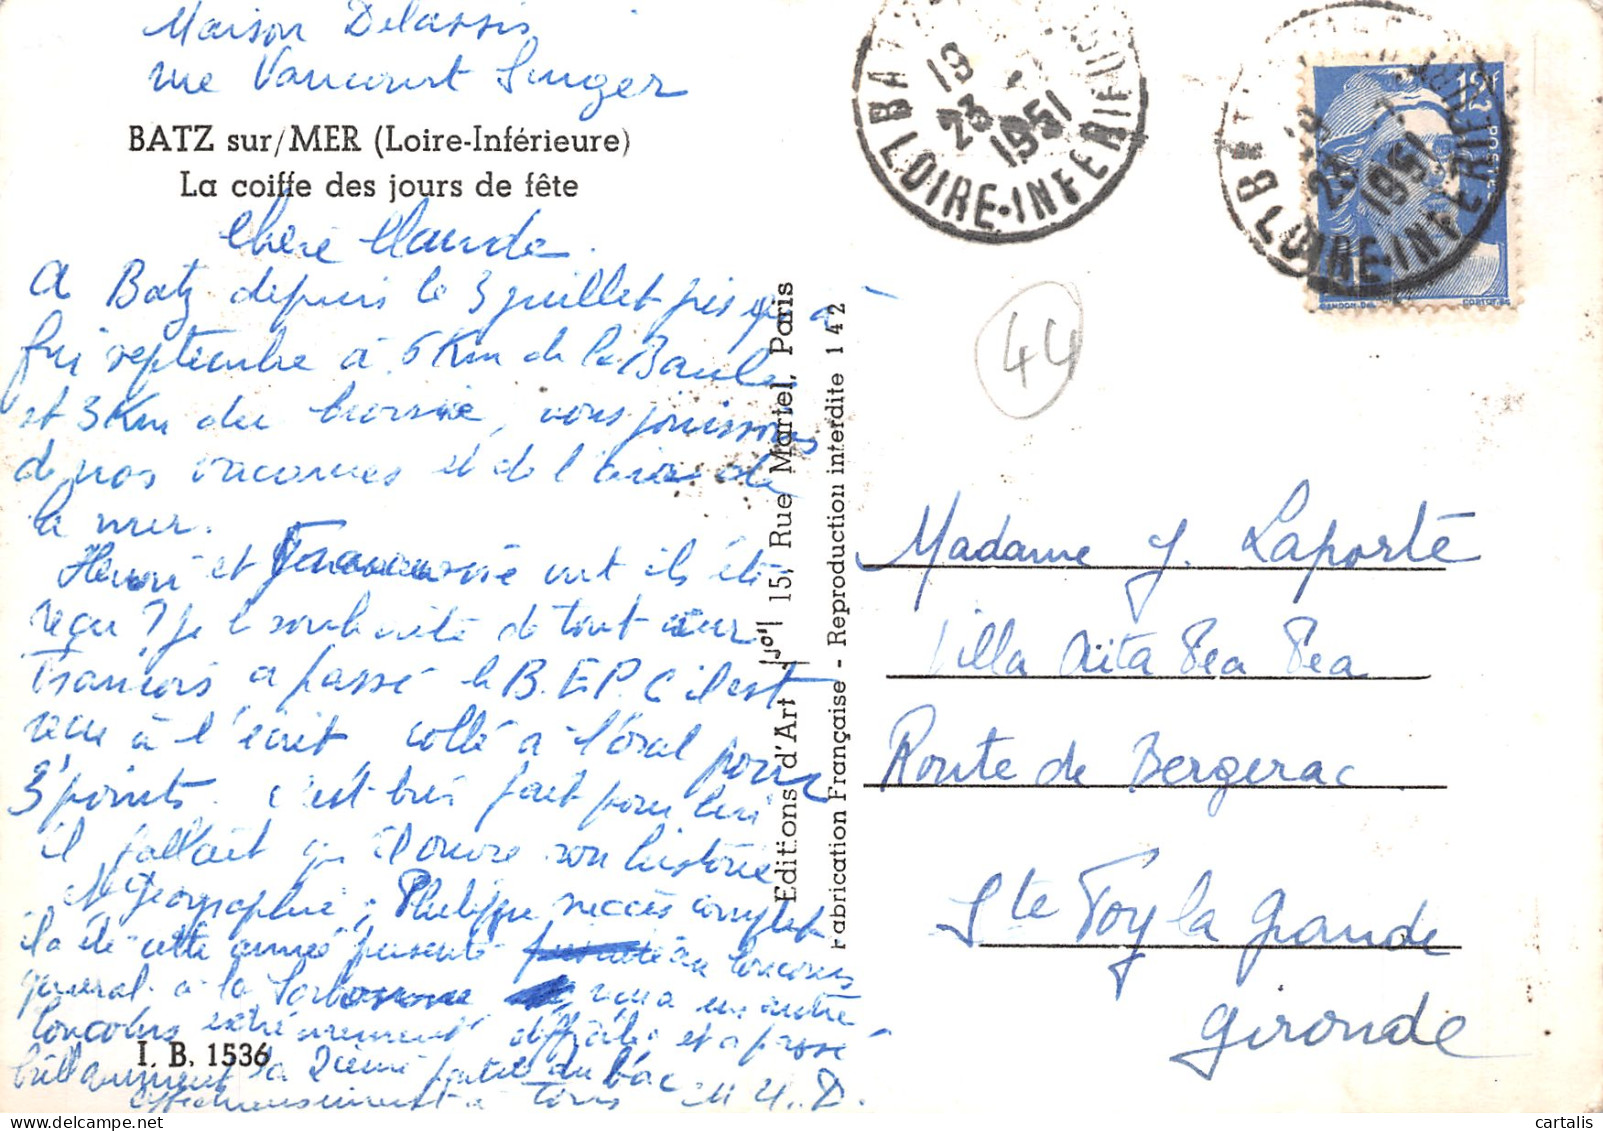 Maison Delassis
rue Vancourt Singer
BATZ sur/MER (Loire-Inférieure)
La coiffe des jours de fête
Chère Claude
A Batz depuis le 3 juillet jusqu'à
fin septembre à 6 Km de la Baule
et 3 Km du Croisic, nous jouissons
de nos vacances et de l'air de
la mer.
Henri et ont ils été
reçu ? Je le souhaite de tout cœur
François a passé le B.E.P.C il est
reçu à l'écrit collé à l'oral pour
3 points. c'est bien fait pour lui
il fallait qu'il ouvre son histoire
et géographie ; Philippe succès complet
il a été cette année présenté au concours
général à la Sorbonne reçu a un autre
concours extrêmement difficile et a passé
brillamment la 2ième partie du bac
affectueusement à tous M. D.
I. B. 1536
Editions d'Art "Jo" 15, Rue Martel, Paris
Fabrication Française - Reproduction interdite 142
BATZ
19
23
1951
LOIRE-INFERIEURE
BATZ
1951
LOIRE-INFERIEURE
12F
POSTES
GANDON DEL
CORTOT SC
44
Madame J. Laporte
Villa Aïta Pea Pea
Route de Bergerac
Ste Foy la Grande
Gironde
cartalis